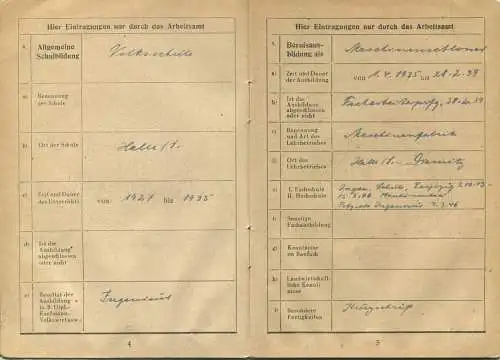 Hier Eintragungen nur durch das Arbeitsamt
4. Allgemeine
Schulbildung
Volksschule
a) Benennung
der Schule
b) Ort der Schule
Halle/S.
c) Zeit und Dauer
des Unterrichts
von 1927 bis 1935
d) Ist die
Ausbildung
abgeschlossen
oder nicht
e) Resultat der
Ausbildung
z. B. Dipl.-
Kaufmann,
Volkswirt usw.
Ingenieur
4
Hier Eintragungen nur durch das Arbeitsamt
5. Berufsaus-
bildung als
Maschinenschlosser
a) Zeit und Dauer
der Ausbildung
von 1.4.1935 bis 28.2.39
b) Ist die
Ausbildung
abgeschlossen
oder nicht
Facharbeiterprüfg.
c) Benennung
und Art des
Lehrbetriebes
Maschinenfabrik
d) Ort des
Lehrbetriebes
Halle/S.
e) I. Fachschule
II. Hochschule
Ingen. Schule, Leipzig
f) Sonstige
Fachausbildung
g) Kenntnisse
im Baufach
h) Landwirtschaft-
liche Kennt-
nisse
i) Besondere
Fertigkeiten
Kurzschrift
5